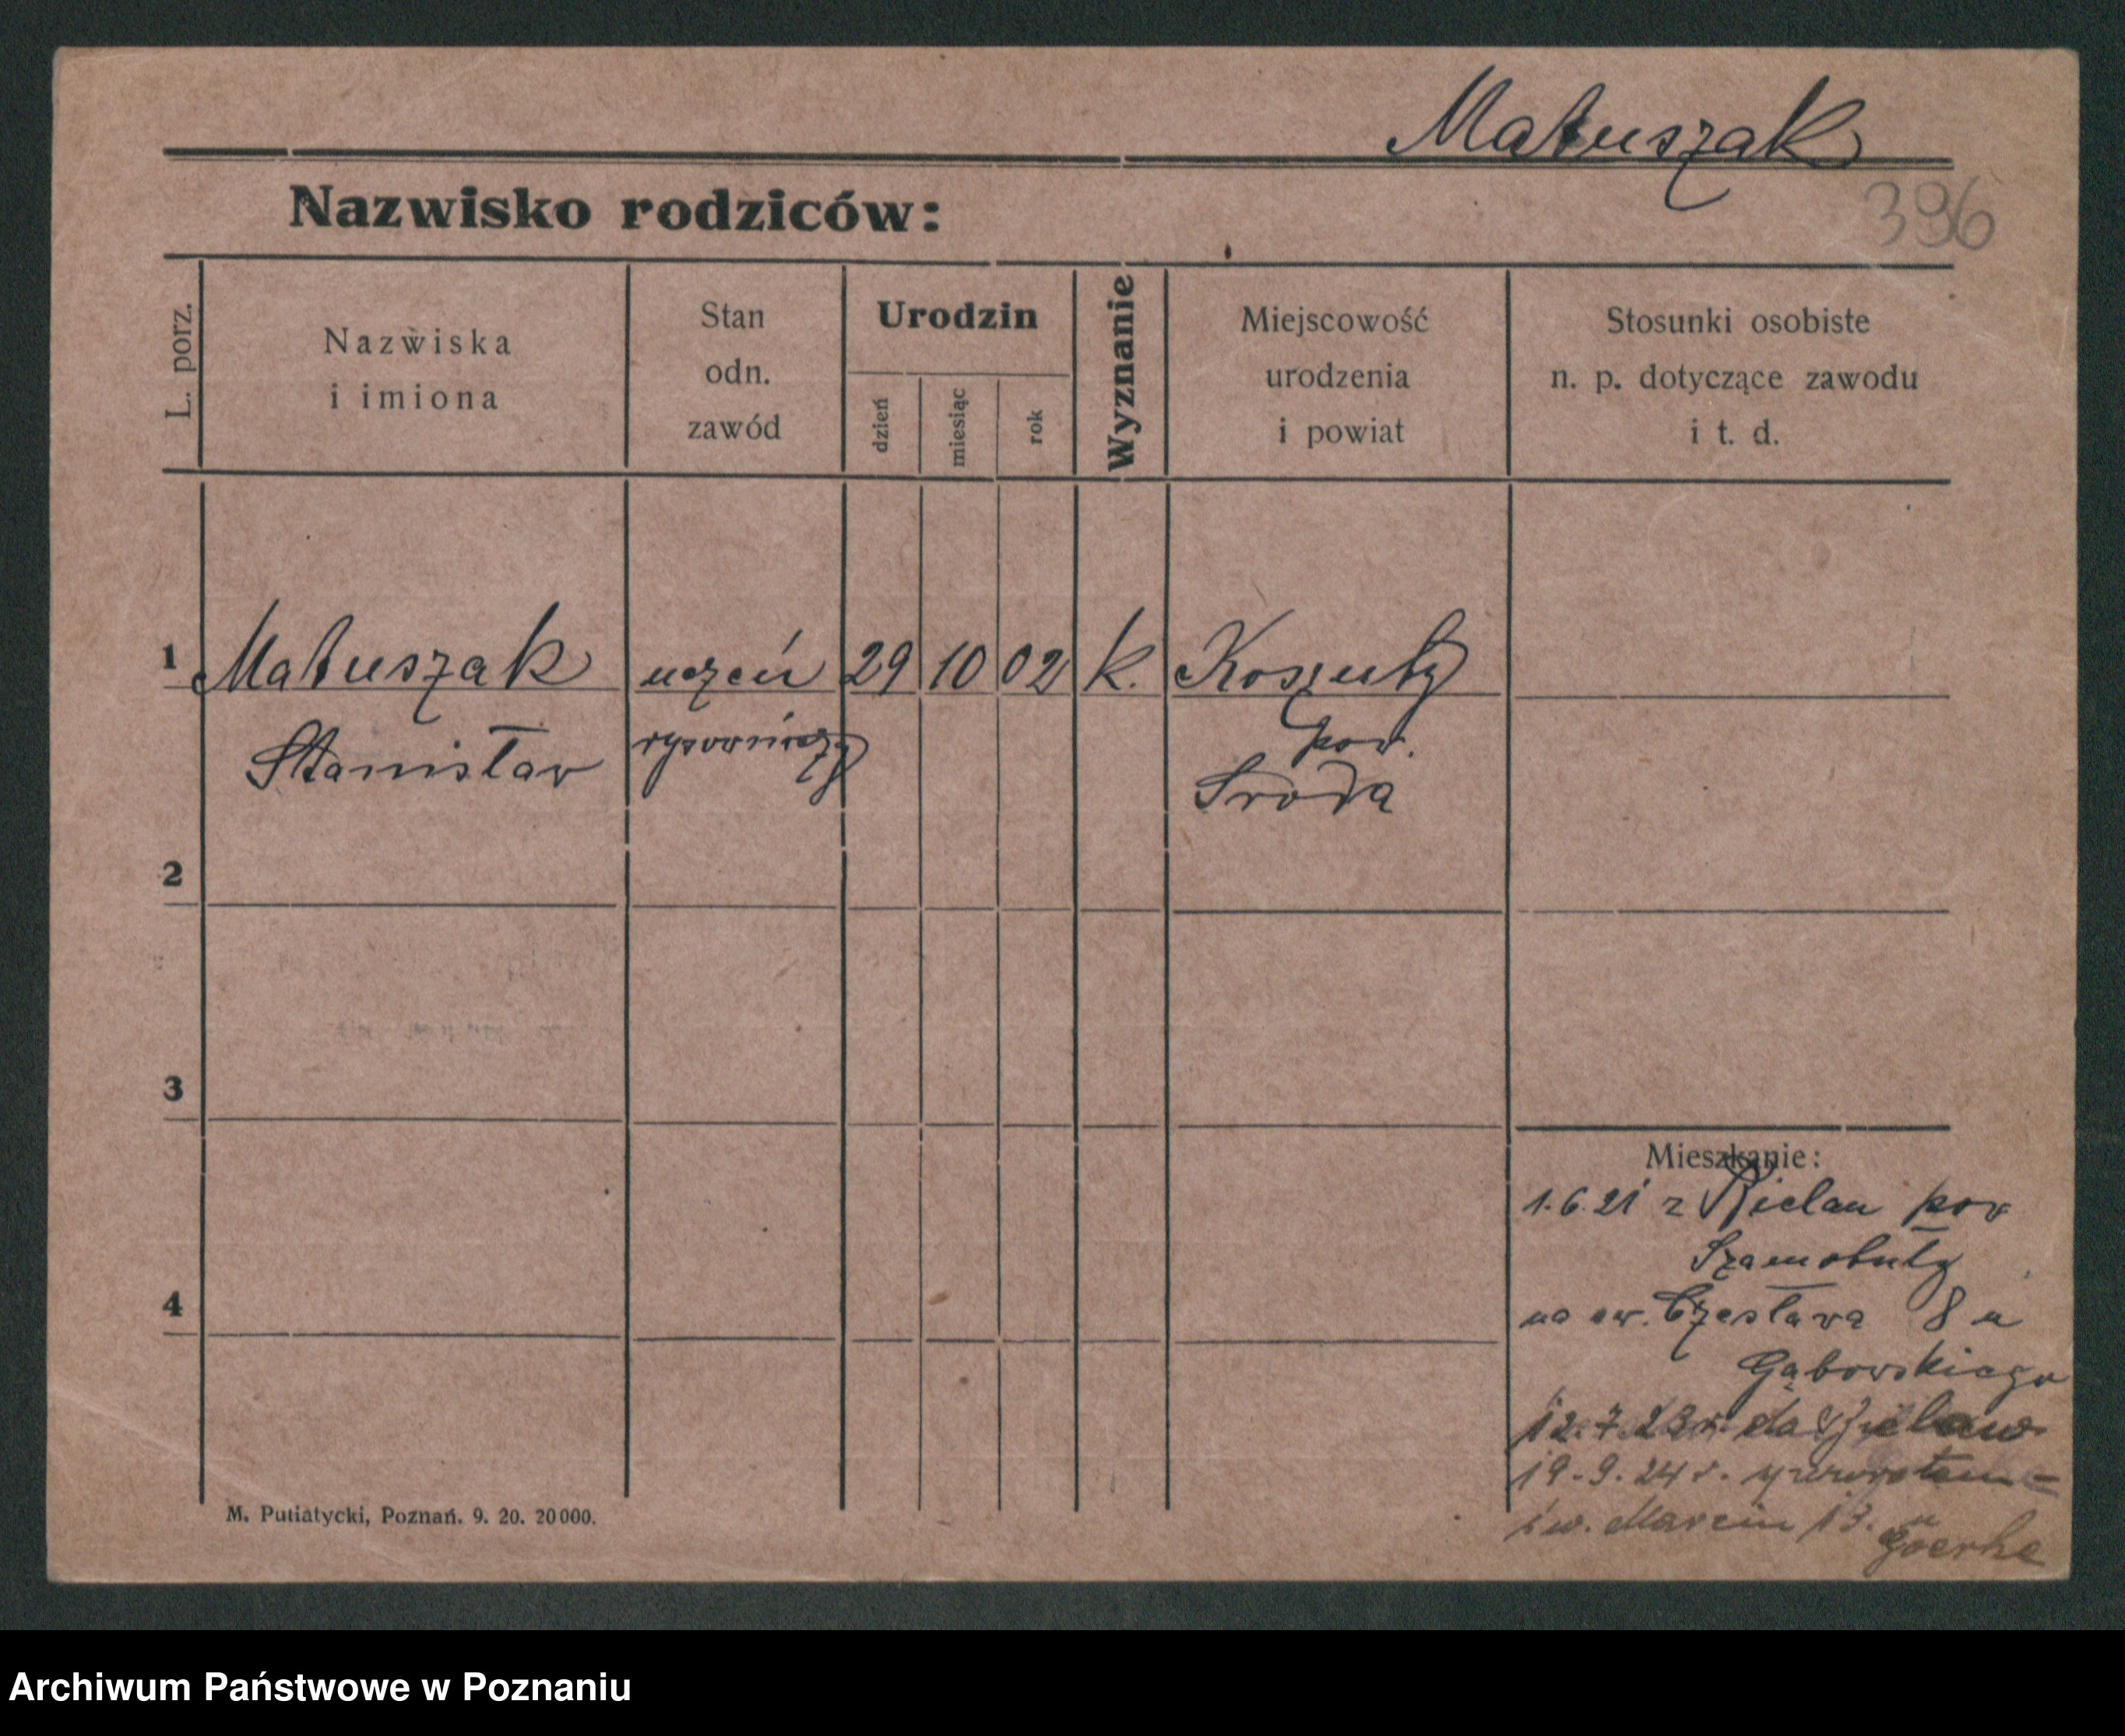 Matuszak
396
Nazwisko rodziców:
L. porz.
Nazwiska
i imiona
Stan
odn.
zawód
Urodzin
dzień
miesiąc
rok
Wyznanie
Miejscowość
urodzenia
i powiat
Stosunki osobiste
n. p. dotyczące zawodu
i t. d.
1 Matuszak uczeń 29 10 02 k. Koszuty
Stanisław pow.
Sroda
2
3
4
Mieszkanie:
1.6.21 z Bielaw pow
Szamotuły
na sw. Czesława 8 u
Gąbowskiego
12.7.23 r. do
19.9.24 r.
św. Marcin 13. u
M. Putiatycki, Poznań. 9. 20. 20000.
Archiwum Państwowe w Poznaniu